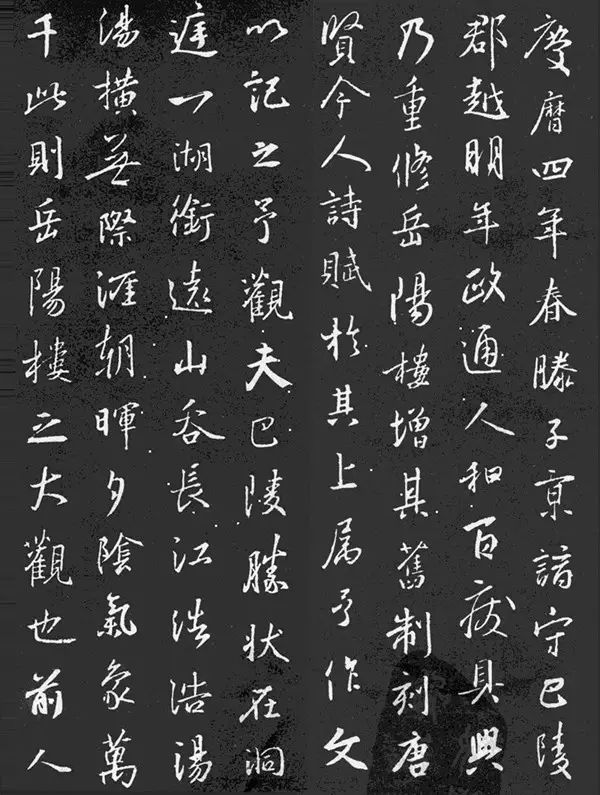 慶曆四年春滕子京謫守巴陵
郡越明年政通人和百廢具興
乃重修岳陽樓增其舊制刻唐
賢今人詩賦於其上属予作文
以記之予觀夫巴陵勝狀在洞
庭一湖銜遠山吞長江浩浩湯
湯橫無際涯朝暉夕陰氣象萬
千此則岳陽樓之大觀也前人